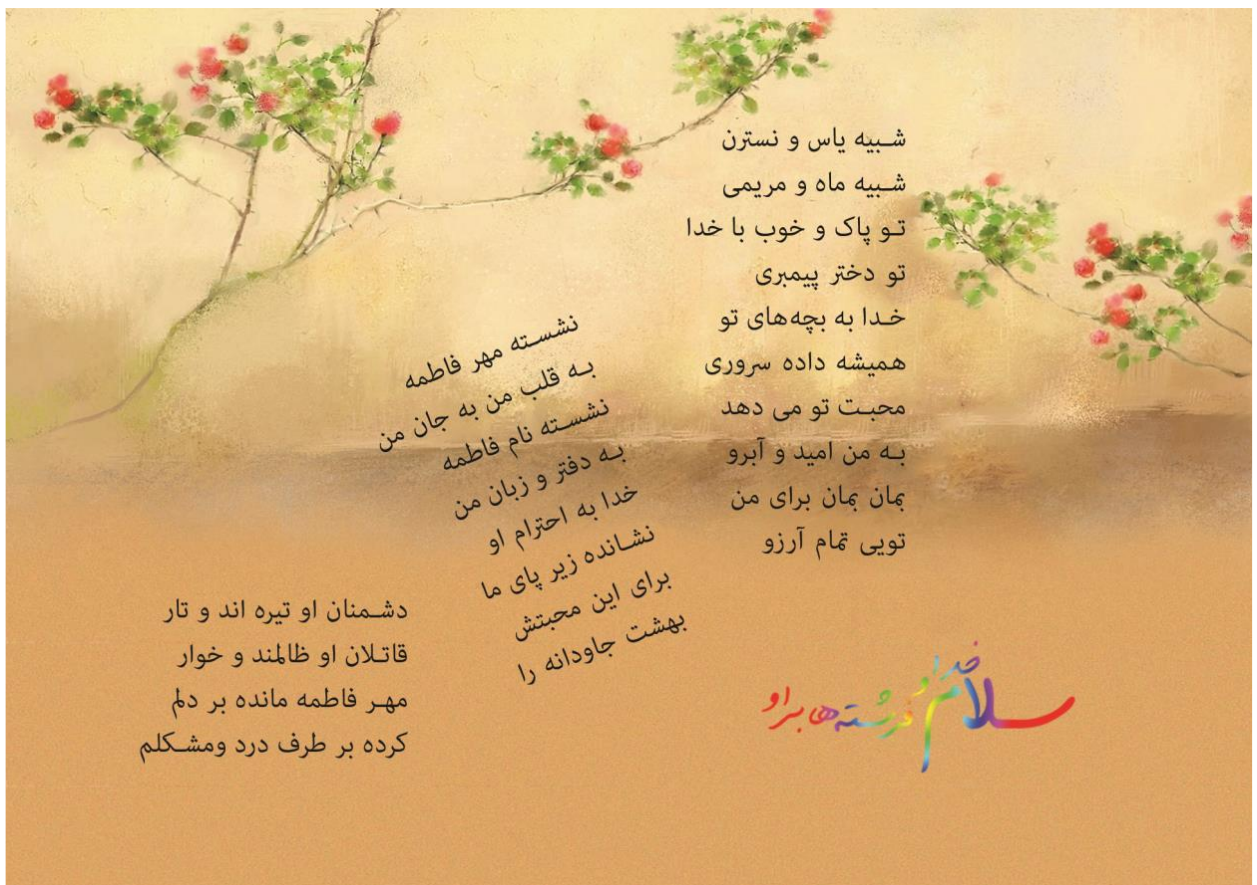 شبیه یاس و نسترن
شبیه ماه و مریمی
تو پاک و خوب با خدا
تو دختر پیمبری
خدا به بچه‌های تو
همیشه داده سروری
محبت تو می دهد
به من امید و آبرو
بمان بمان برای من
تویی تمام آرزو
نشسته مهر فاطمه
به قلب من به جان من
نشسته نام فاطمه
به دفتر و زبان من
خدا به احترام او
نشانده زیر پای ما
برای این محبتش
بهشت جاودانه را
دشمنان او تیره اند و تار
قاتلان او ظالمند و خوار
مهر فاطمه مانده بر دلم
کرده بر طرف درد ومشکلم
سلام خدا و فرشته‌ها بر او